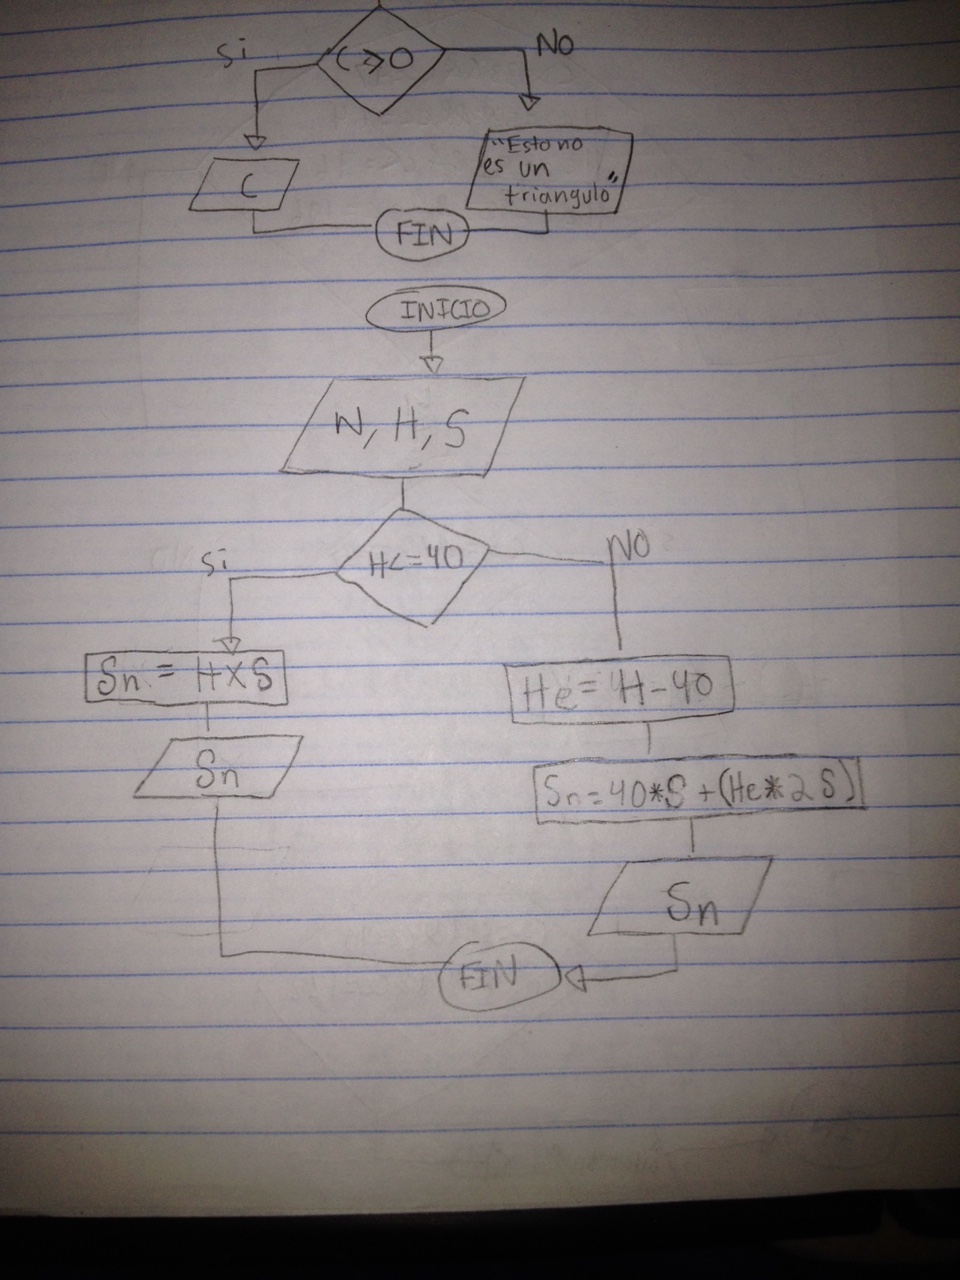 Si
C >= 0
NO
C
"Esto no
es un
triangulo"
FIN
INICIO
N, H, S
Si
H<=40
NO
Sn = H×S
He = H-40
Sn
Sn=40*S+(He*2S)
Sn
FIN